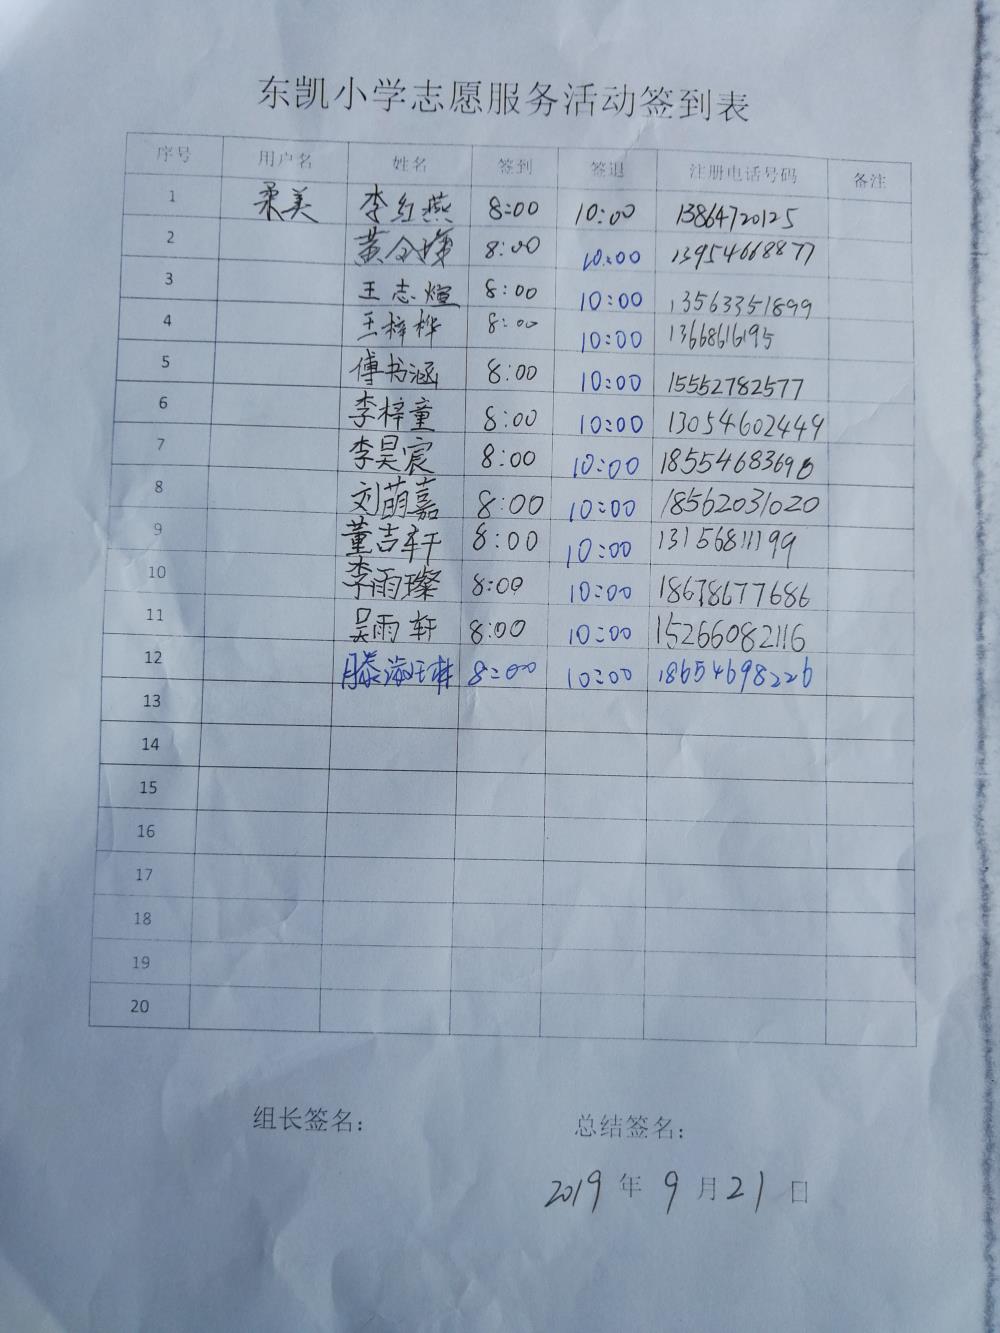 东凯小学志愿服务活动签到表
序号 用户名 姓名 签到 签退 注册电话号码 备注
1 柔美 李红燕 8:00 10:00 13864720125
2 黄 8:00 10:00 13954668877
3 王志煊 8:00 10:00 13563351899
4 王梓桦 8:00 10:00 13668616195
5 傅书涵 8:00 10:00 15552782577
6 李梓童 8:00 10:00 13054602449
7 李昊宸 8:00 10:00 18554683698
8 刘萌嘉 8:00 10:00 18562031020
9 董吉轩 8:00 10:00 13156811199
10 李雨璨 8:00 10:00 18678677686
11 吴雨轩 8:00 10:00 15266082116
12 滕海 8:00 10:00 18654698226
13
14
15
16
17
18
19
20
组长签名: 总结签名:
2019年9月21日